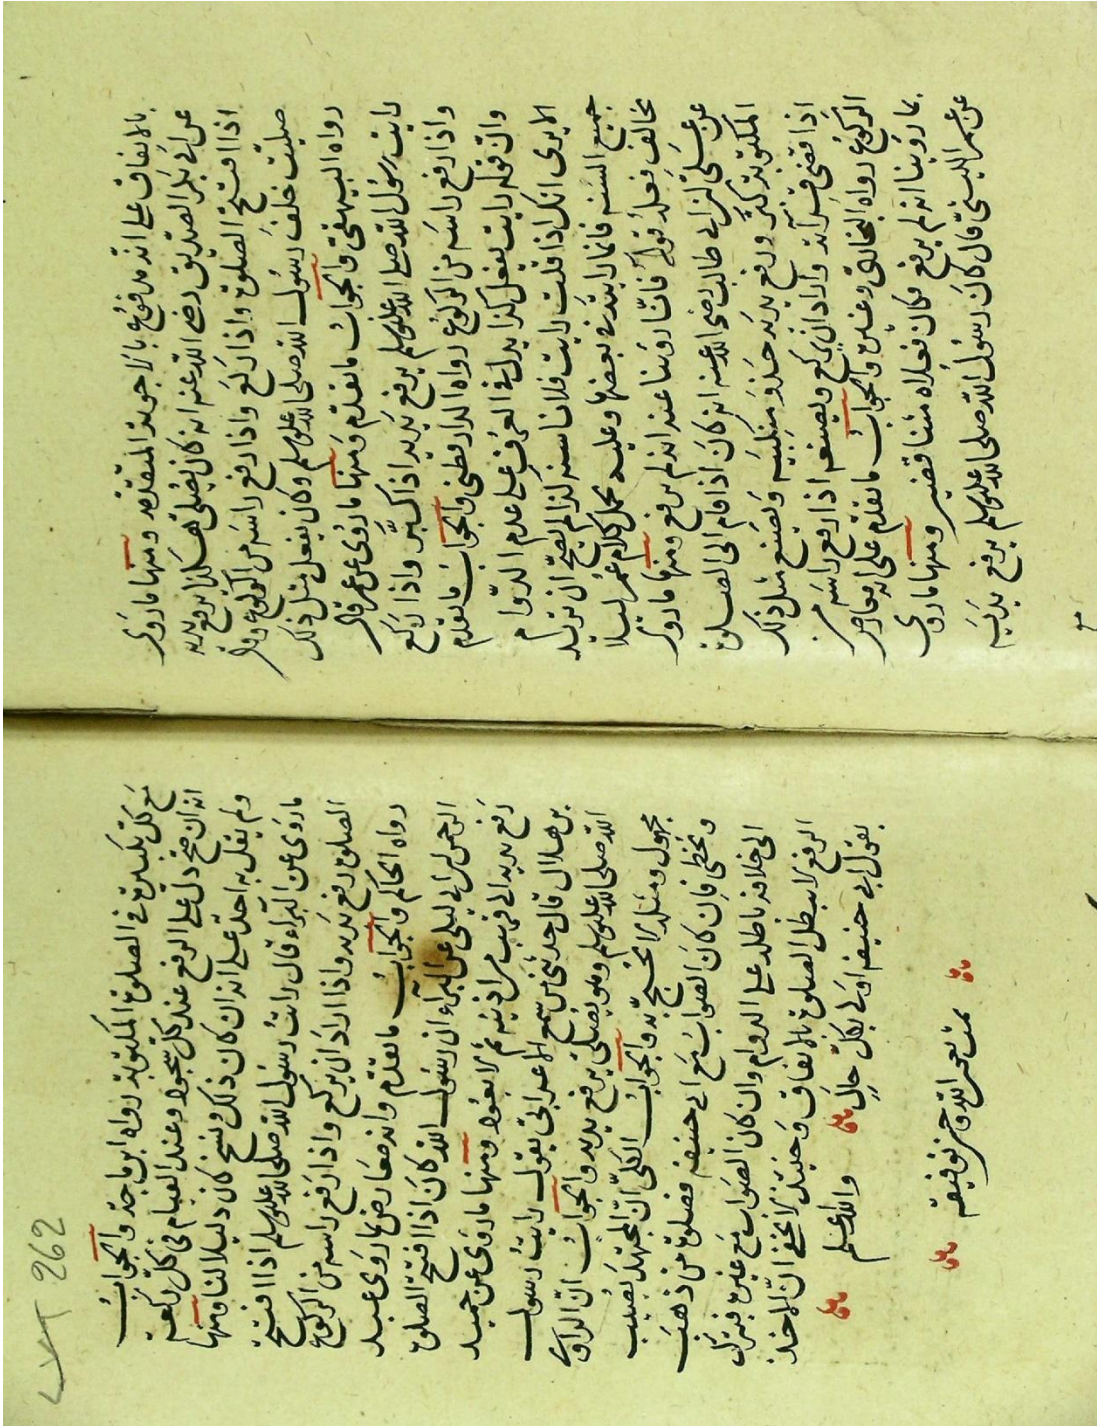 بالاتفاق على انه مدفوع بالاجوبة المتقدمة ومنها ما روى
عن ابي بكر الصديق رضي الله عنه انه كان يصلي هكذا يرفع يديه
اذا افتتح الصلوة واذا ركع واذا رفع راسه من الركوع وقال
صليت خلف رسول الله صلى الله عليه وسلم وكان يفعل مثل ذلك
رواه البيهقي والجواب ما تقدم ومنها ما روى عن عمر قال
رايت رسول الله صلى الله عليه وسلم يرفع يديه اذا كبّر واذا ركع
واذا رفع راسه من الركوع رواه الدارقطني والجواب ما تقدم
وان قوله رايت يفعل كذا يدل في العرف على عدم الدوام
الا يرى انك اذا قلت رايت فلانا سنة كذا لم يصح ان تريد
جميع السنة فانما رايته في بعضها وعليه يحمل كلام عمر لئلا
يخالف فعله قوله فانا روينا عنه انه لم يرفع ومنها ما روى
عن علي بن ابي طالب رضي الله عنه انه كان اذا قام الى الصلوة
المكتوبة كبّر ورفع يديه حذو منكبيه ويصنع مثل ذلك
اذا قضى قرآته واراد ان يركع ويصنعه اذا رفع راسه من
الركوع رواه البخاري وغيره والجواب ما تقدم على انه معارض
بما روينا انه لم يرفع فكان فعلاه متناقضين ومنها ما روى
عن عمر الليثي قال كان رسول الله صلى الله عليه وسلم يرفع يديه
مع
مع كل تكبيرة في الصلوة المكتوبة رواه ابن ماجة والجواب
انه ان صح دل على الرفع عند كل سجود وعند القيام في كل ركعة
ولم يقل به احد على انه ان كان ذلك ونسخ كان دليلا لنا ومنها
ما روى عن البراء قال رايت رسول الله صلى الله عليه وسلم اذا افتتح
الصلوة رفع يديه واذا اراد ان يركع واذا رفع راسه من الركوع
رواه الحاكم والجواب ما تقدم وانه معارض بما روى عبد
الرحمن بن ابي ليلى عن البراء ان رسول الله كان اذا افتتح الصلوة
رفع يديه الى قريب من اذنيه ثم لا يعود ومنها ما روى عن حميد
بن هلال قال حدثني من سمع الاعرابي يقول رايت رسول
الله صلى الله عليه وسلم وهو يصلي يرفع يديه والجواب ان الراوي
مجهول ومثله لا يحتج به والجواب الكلي ان المجتهد يصيب
ويخطي فان كان الصواب مع ابي حنيفة فصلوة من ذهب
الى خلافه باطلة على الدوام وان كان الصواب مع غيره فترك
الرفع لا يبطل الصلوة بالاتفاق وحينئذ لا يخفى ان الاخذ
بقول ابي حنيفة اولى بكل حال والله اعلم
تمت بعون الله وحسن توفيقه
262